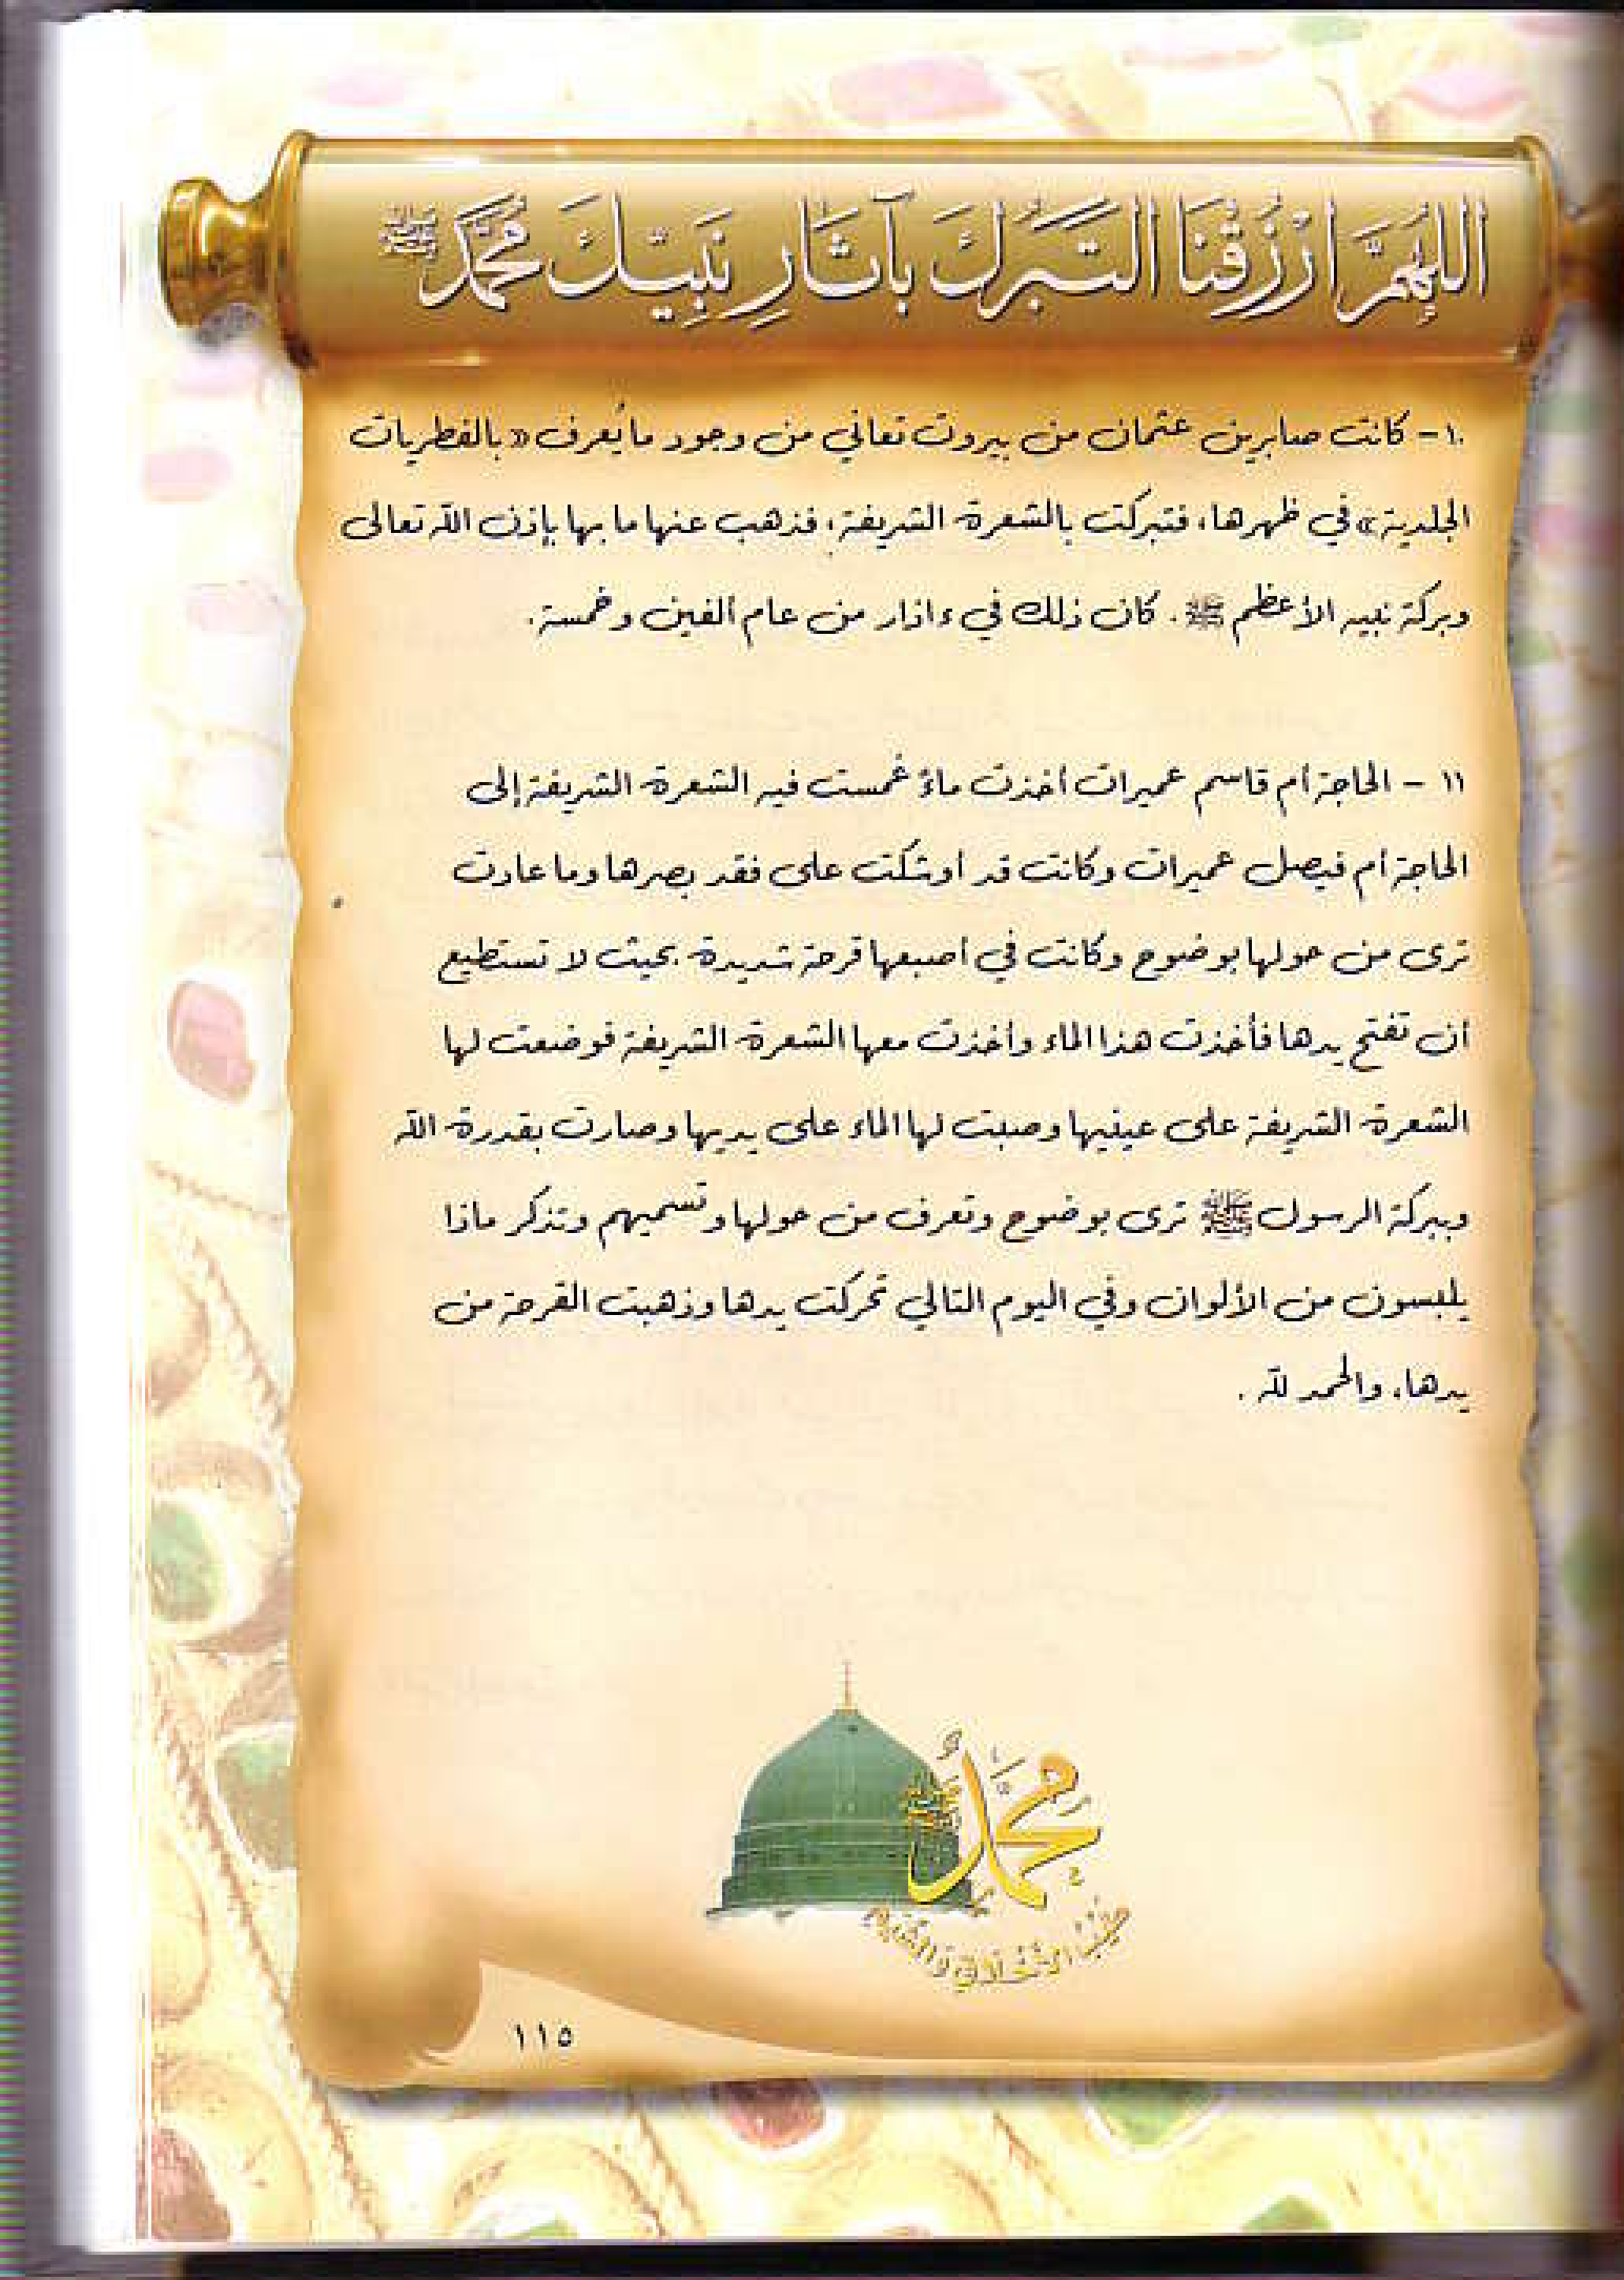 اللهم ارزقنا التبرك بآثار نبيك محمد ﷺ
١٠- كانت صابرين عثمان من بيروت تعاني من وجود ما يُعرف «بالفطريات
الجلدية» في ظهرها، فتبركت بالشعرة الشريفة، فذهب عنها ما بها بإذن الله تعالى
وبركة نبيه الأعظم ﷺ. كان ذلك في ءاذار من عام ألفين وخمسة.
١١ - الحاجة أم قاسم عميرات أخذت ماءً غمست فيه الشعرة الشريفة إلى
الحاجة أم فيصل عميرات وكانت قد أوشكت على فقد بصرها وما عادت
ترى من حولها بوضوح وكانت في أصبعها قرحة شديدة بحيث لا تستطيع
أن تفتح يدها فأخذت هذا الماء وأخذت معها الشعرة الشريفة فوضعت لها
الشعرة الشريفة على عينيها وصبت لها الماء على يديها وصارت بقدرة الله
وببركة الرسول ﷺ ترى بوضوح وتعرف من حولها وتسميهم وتذكر ماذا
يلبسون من الألوان وفي اليوم التالي تحركت يدها وذهبت القرحة من
يدها، والحمد لله.
محمد ﷺ
١١٥